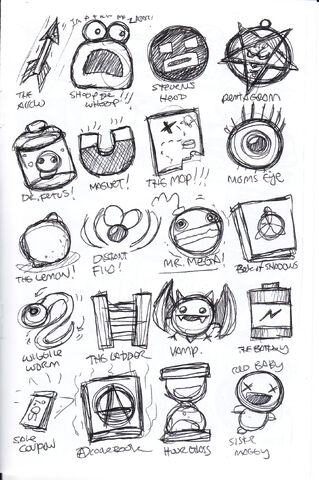 THE ARROW
SHOOP DA WHOOP!!!
STEVENS HEAD
PENTAGRAM
DR. FETUS!
MAGNET!
THE MAP!!!
MOMS EYE
THE LEMON!
DISTANT FLY!
MR. MEGA!
BOOK OF SHADOWS
WIGGLE WORM
THE LADDER
VAMP.
THE BATTERY
SALE COUPON
A COOKBOOK
HOUR GLASS
OLD BABY
SISTR MAGGY